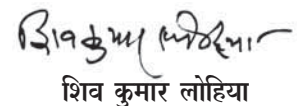 शिव कुमार लोहिया
शिव कुमार लोहिया